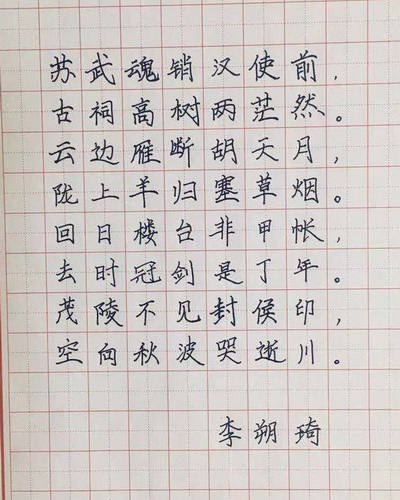 苏武魂销汉使前，
古祠高树两茫然。
云边雁断胡天月，
陇上羊归塞草烟。
回日楼台非甲帐，
去时冠剑是丁年。
茂陵不见封侯印，
空向秋波哭逝川。
李朔琦